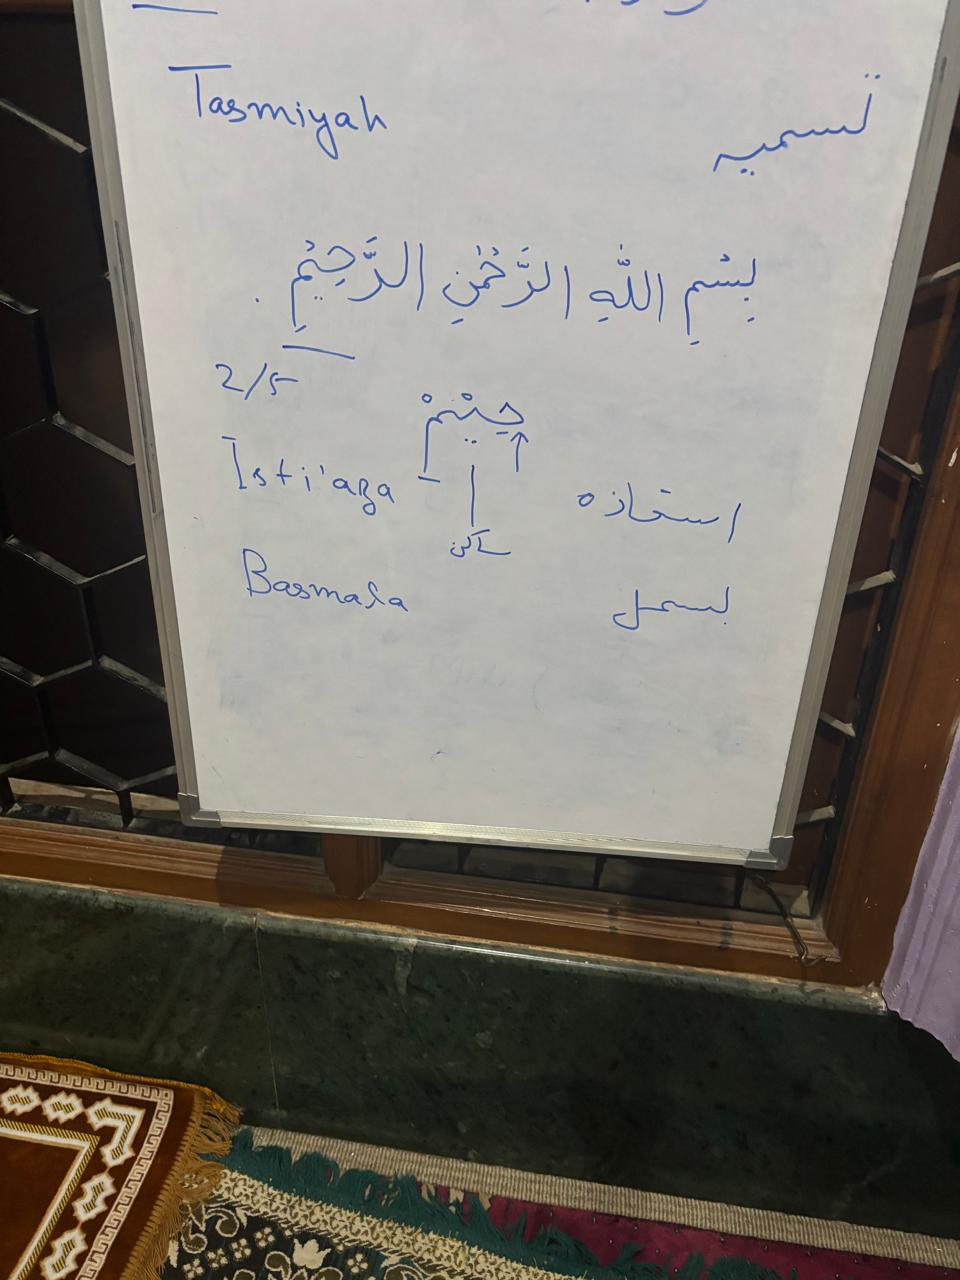 Tasmiyah تسمیہ
بِسْمِ اللّٰهِ الرَّحْمٰنِ الرَّحِيْمِ
2/5
حِيْمْ
Isti'aza استعاذه
ساکن
Basmala بسمل